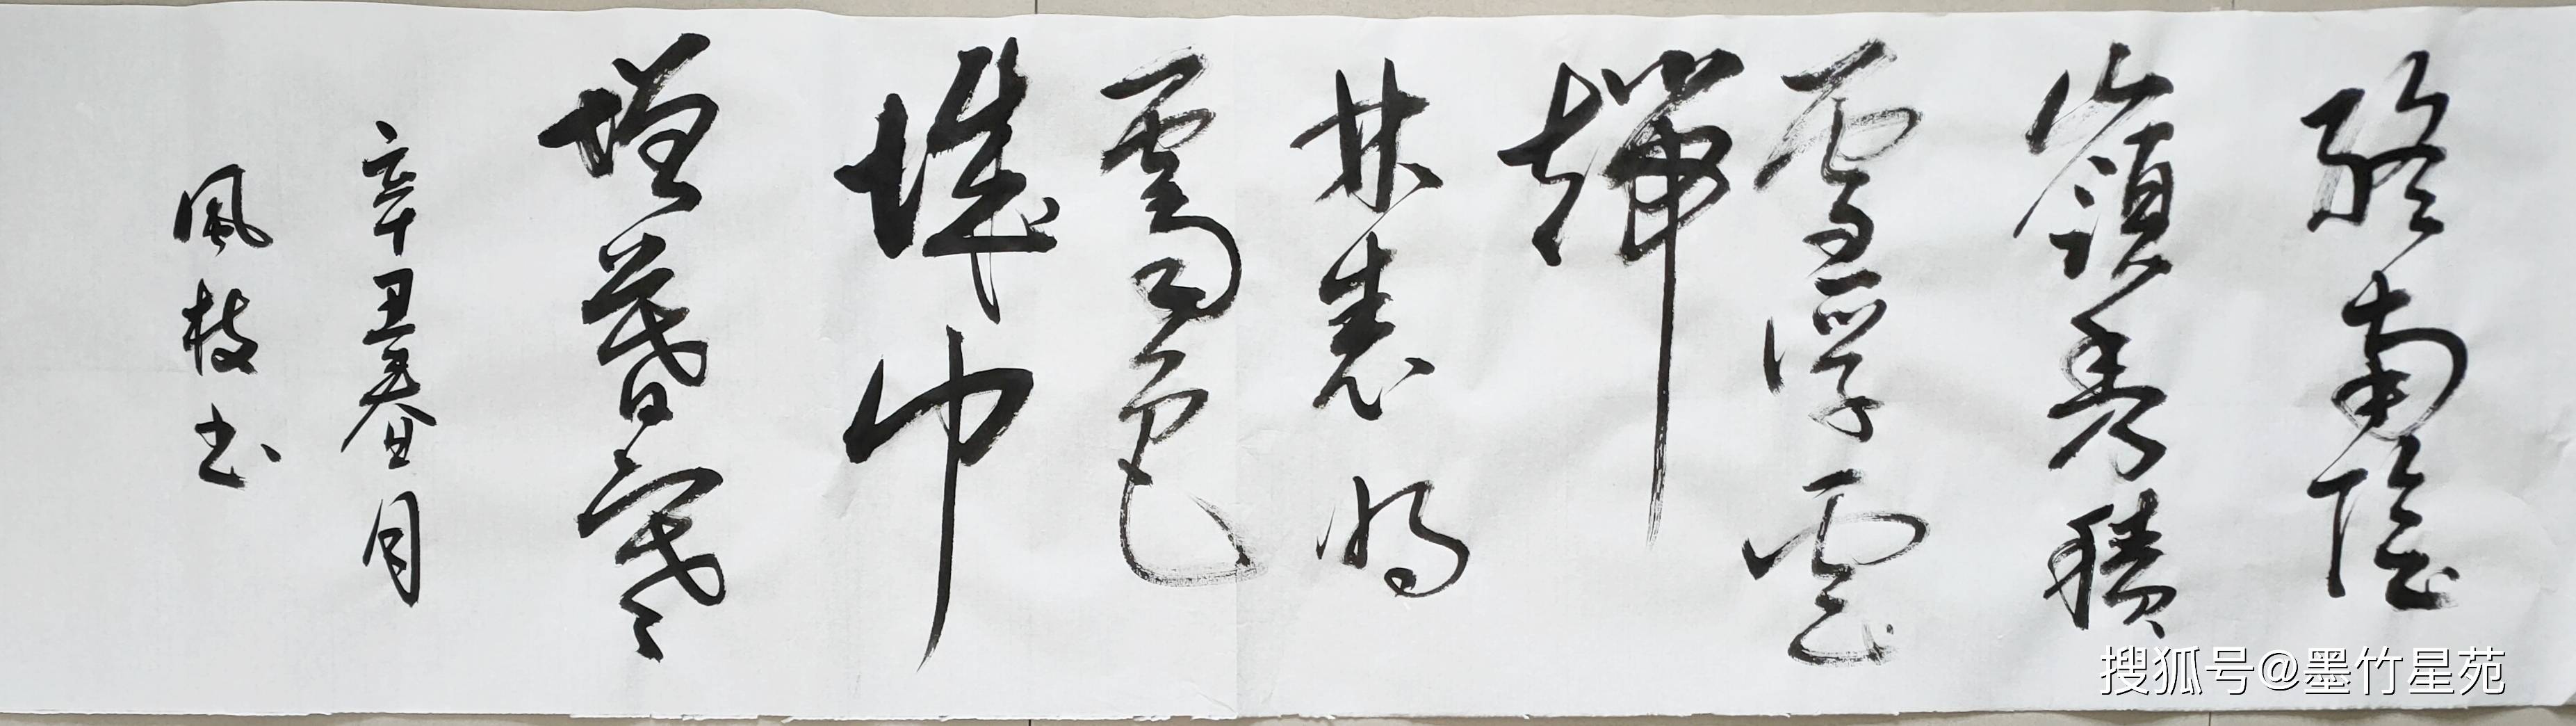 終南陰
嶺秀積
雪浮雲
端
林表明
霽色
城中
增暮寒
辛丑春月
風枝书
搜狐号@墨竹星苑